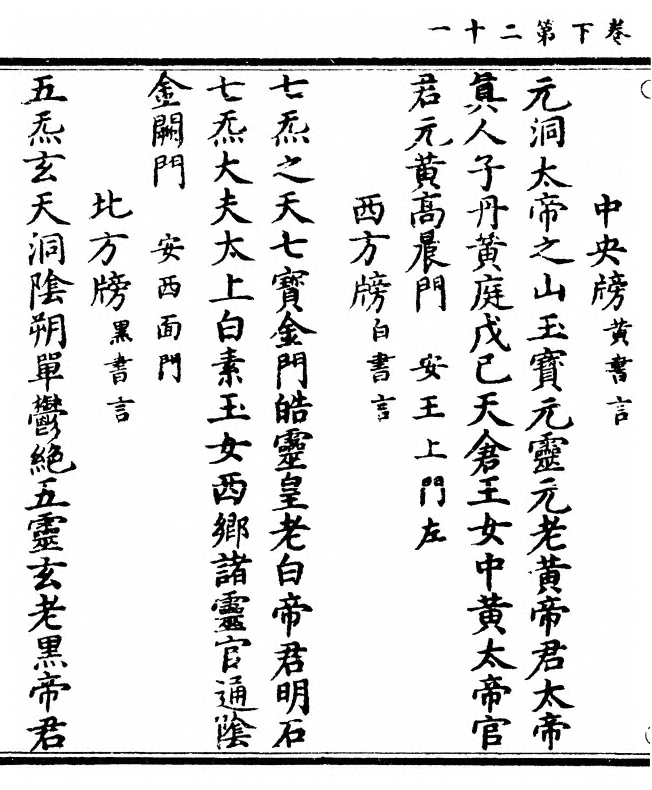 卷下第二十一
中央牓黃書言
元洞太帝之山玉寶元靈元老黃帝君太帝
眞人子丹黃庭戊己天倉王女中黃太帝官
君元黃高晨門 安王上門左
西方牓白書言
七炁之天七寶金門皓靈皇老白帝君明石
七炁大夫太上白素玉女西鄉諸靈官通陰
金闕門 安西面門
北方牓黑書言
五炁玄天洞陰朔單鬱絕五靈玄老黑帝君